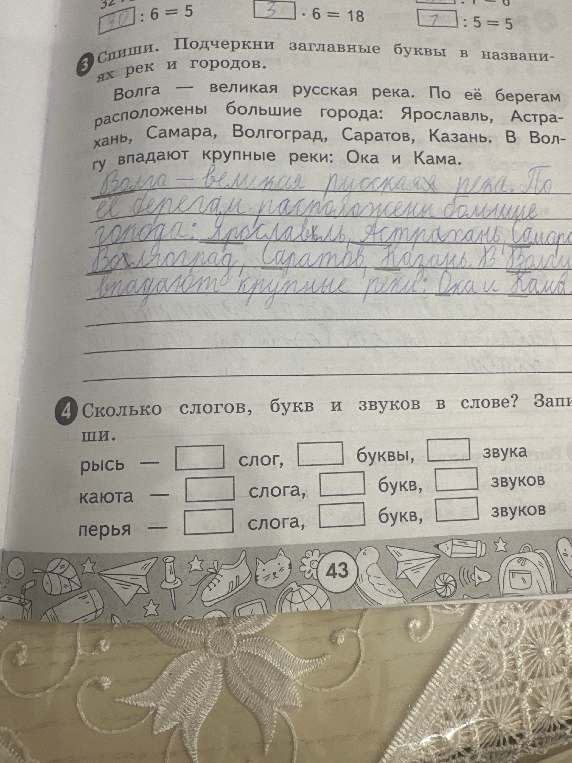 30 : 6 = 5 3 · 6 = 18 : 5 = 5
3 Спиши. Подчеркни заглавные буквы в названи-
ях рек и городов.
Волга — великая русская река. По её берегам
расположены большие города: Ярославль, Астра-
хань, Самара, Волгоград, Саратов, Казань. В Вол-
гу впадают крупные реки: Ока и Кама.
Волга – великая русская река. По
её берегам расположены большие
города: Ярославль, Астрахань, Самара
Волгоград, Саратов, Казань. В Волгу
впадают крупные реки: Ока и Кама
4 Сколько слогов, букв и звуков в слове? Запи
ши.
рысь — слог, буквы, звука
каюта — слога, букв, звуков
перья — слога, букв, звуков
43